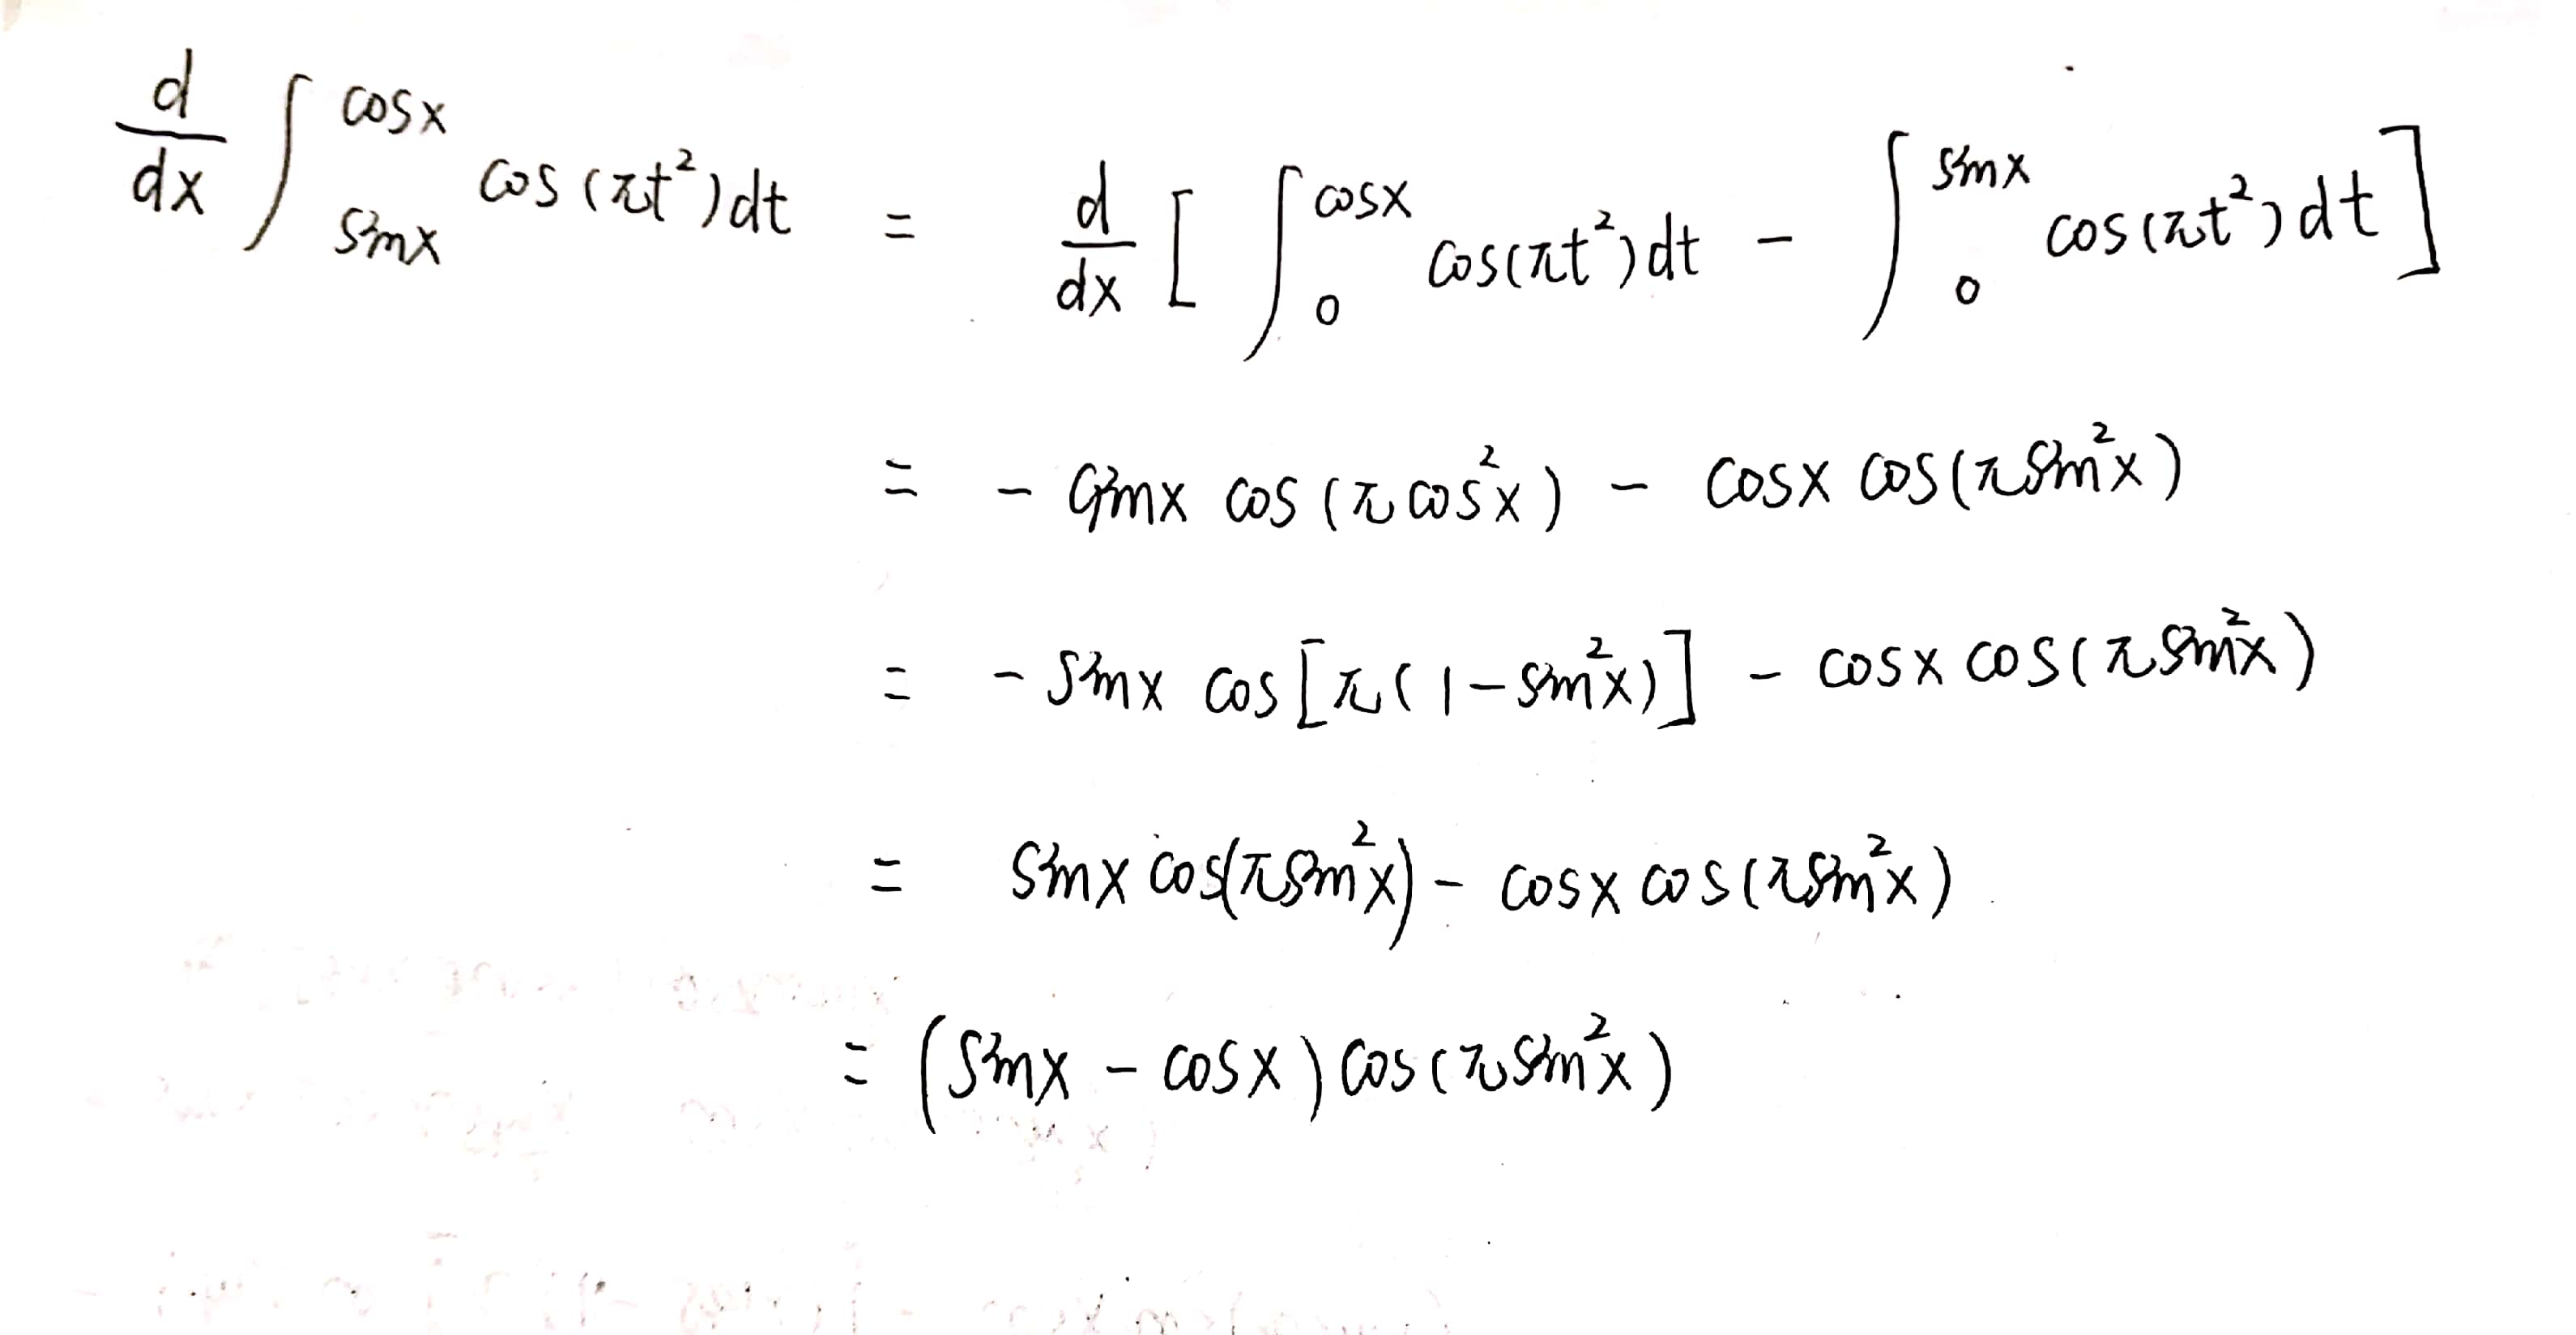 d/dx ∫_{sinx}^{cosx} cos(πt²)dt = d/dx [ ∫_0^{cosx} cos(πt²)dt - ∫_0^{sinx} cos(πt²)dt ]
= - sinx cos(πcos²x) - cosx cos(πsin²x)
= - sinx cos[π(1-sin²x)] - cosx cos(πsin²x)
= sinx cos(πsin²x) - cosx cos(πsin²x)
= (sinx - cosx) cos(πsin²x)